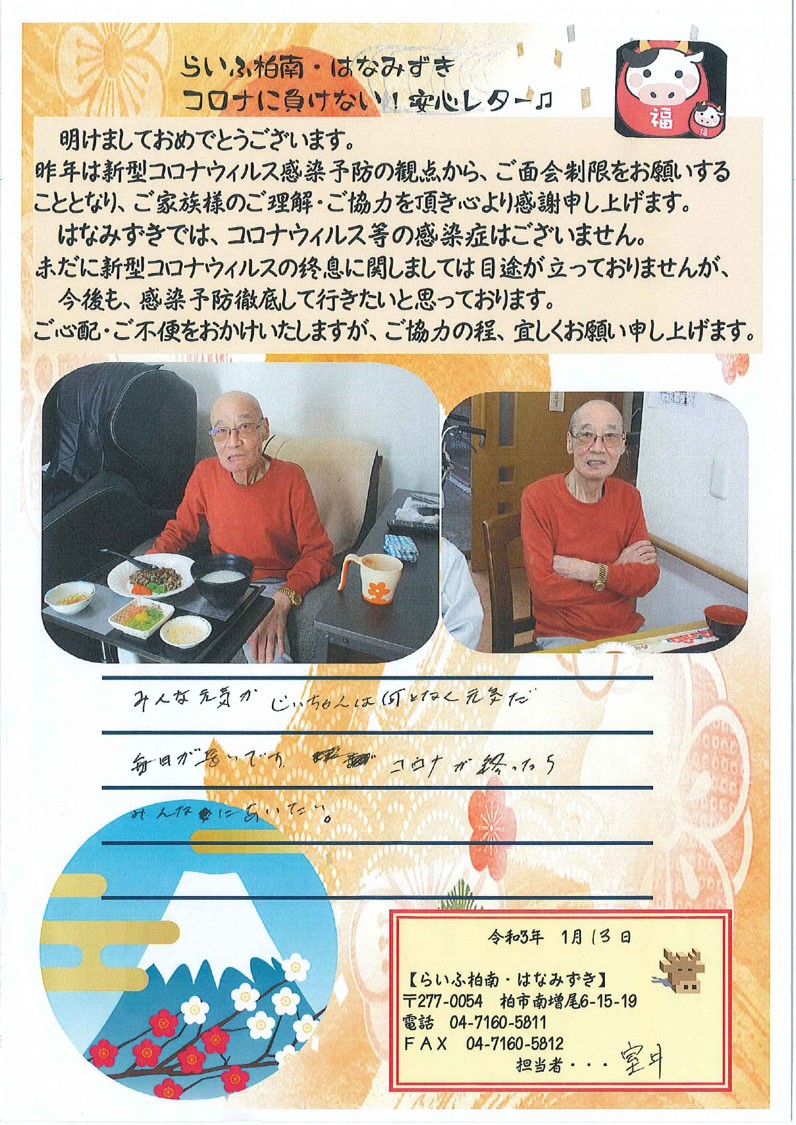 らいふ柏南・はなみずき
コロナに負けない！安心レター♫
福
福
明けましておめでとうございます。
昨年は新型コロナウィルス感染予防の観点から、ご面会制限をお願いする
こととなり、ご家族様のご理解・ご協力を頂き心より感謝申し上げます。
はなみずきでは、コロナウィルス等の感染症はございません。
未だに新型コロナウィルスの終息に関しましては目途が立っておりませんが、
今後も、感染予防徹底して行きたいと思っております。
ご心配・ご不便をおかけいたしますが、ご協力の程、宜しくお願い申し上げます。
みんな元気か じいちゃんは何となく元気だ
毎日が です コロナが終ったら
みんなにあいたい。
令和3年 1月13日
【らいふ柏南・はなみずき】
〒277-0054 柏市南増尾6-15-19
電話 04-7160-5811
ＦＡＸ 04-7160-5812
担当者・・・